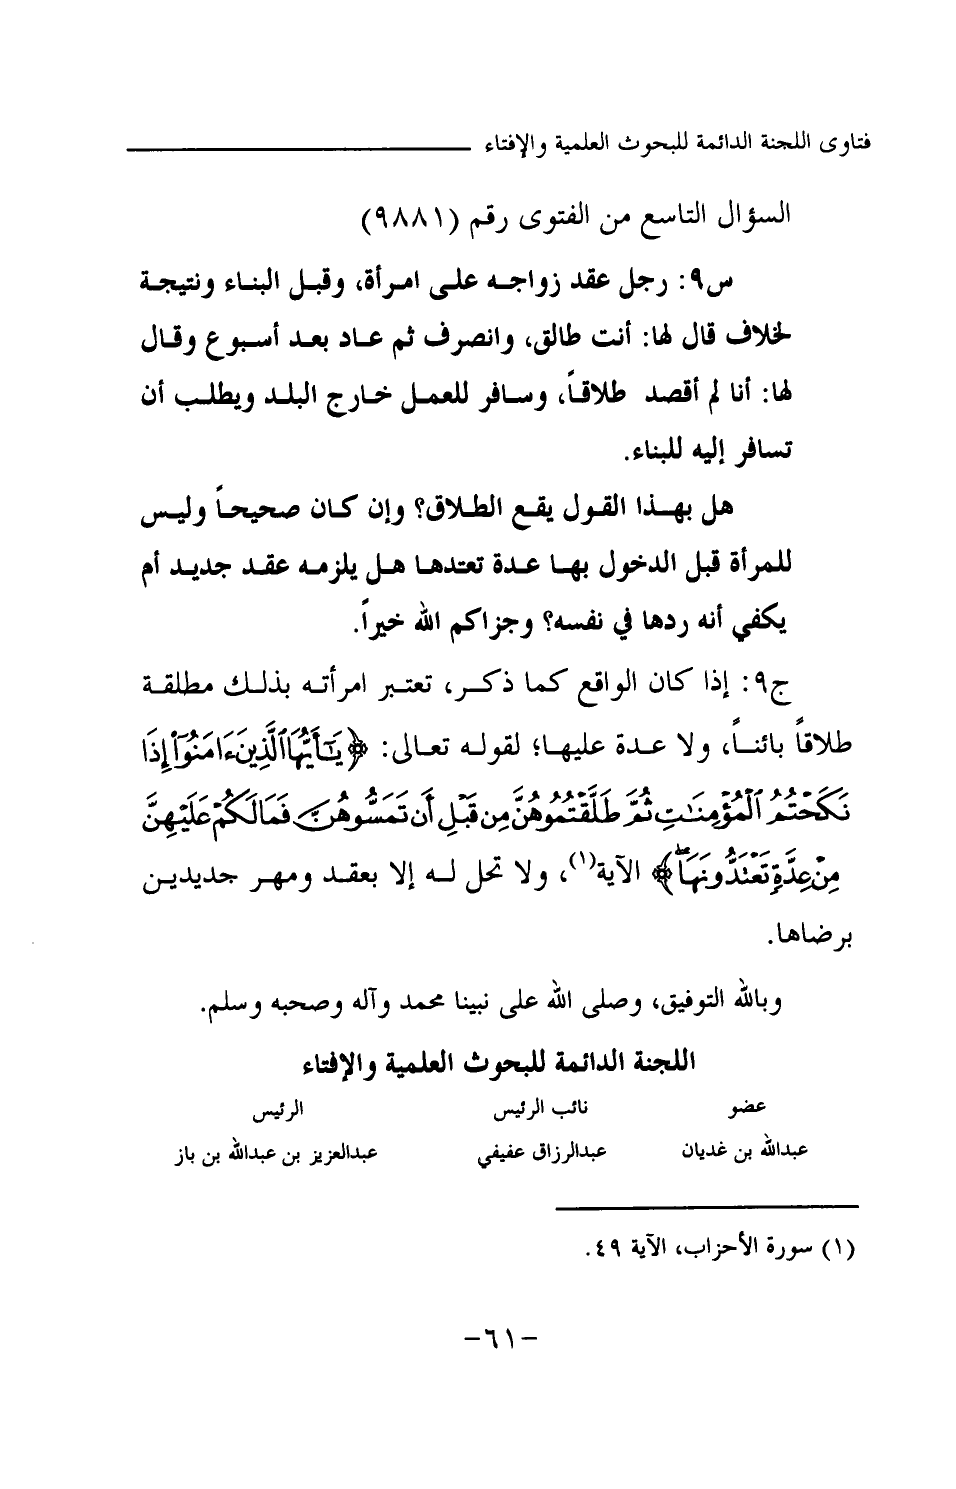 فتاوى اللجنة الدائمة للبحوث العلمية والإفتاء
السؤال التاسع من الفتوى رقم (٩٨٨١)
س٩: رجل عقد زواجه على امرأة، وقبل البناء ونتيجة
لخلاف قال لها: أنت طالق، وانصرف ثم عاد بعد أسبوع وقال
لها: أنا لم أقصد طلاقاً، وسافر للعمل خارج البلد ويطلب أن
تسافر إليه للبناء.
هل بهذا القول يقع الطلاق؟ وإن كان صحيحاً وليس
للمرأة قبل الدخول بها عدة تعتدها هل يلزمه عقد جديد أم
يكفي أنه ردها في نفسه؟ وجزاكم الله خيراً.
ج٩: إذا كان الواقع كما ذكر، تعتبر امرأته بذلك مطلقة
طلاقاً بائناً، ولا عدة عليها؛ لقوله تعالى: ﴿يَٰٓأَيُّهَا ٱلَّذِينَ ءَامَنُوٓا۟ إِذَا
نَكَحْتُمُ ٱلْمُؤْمِنَٰتِ ثُمَّ طَلَّقْتُمُوهُنَّ مِن قَبْلِ أَن تَمَسُّوهُنَّ فَمَا لَكُمْ عَلَيْهِنَّ
مِنْ عِدَّةٍ تَعْتَدُّونَهَا﴾ الآية(١)، ولا تحل له إلا بعقد ومهر جديدين
برضاها.
وبالله التوفيق، وصلى الله على نبينا محمد وآله وصحبه وسلم.
اللجنة الدائمة للبحوث العلمية والإفتاء
عضو نائب الرئيس الرئيس
عبدالله بن غديان عبدالرزاق عفيفي عبدالعزيز بن عبدالله بن باز
(١) سورة الأحزاب، الآية ٤٩.
-٦١-